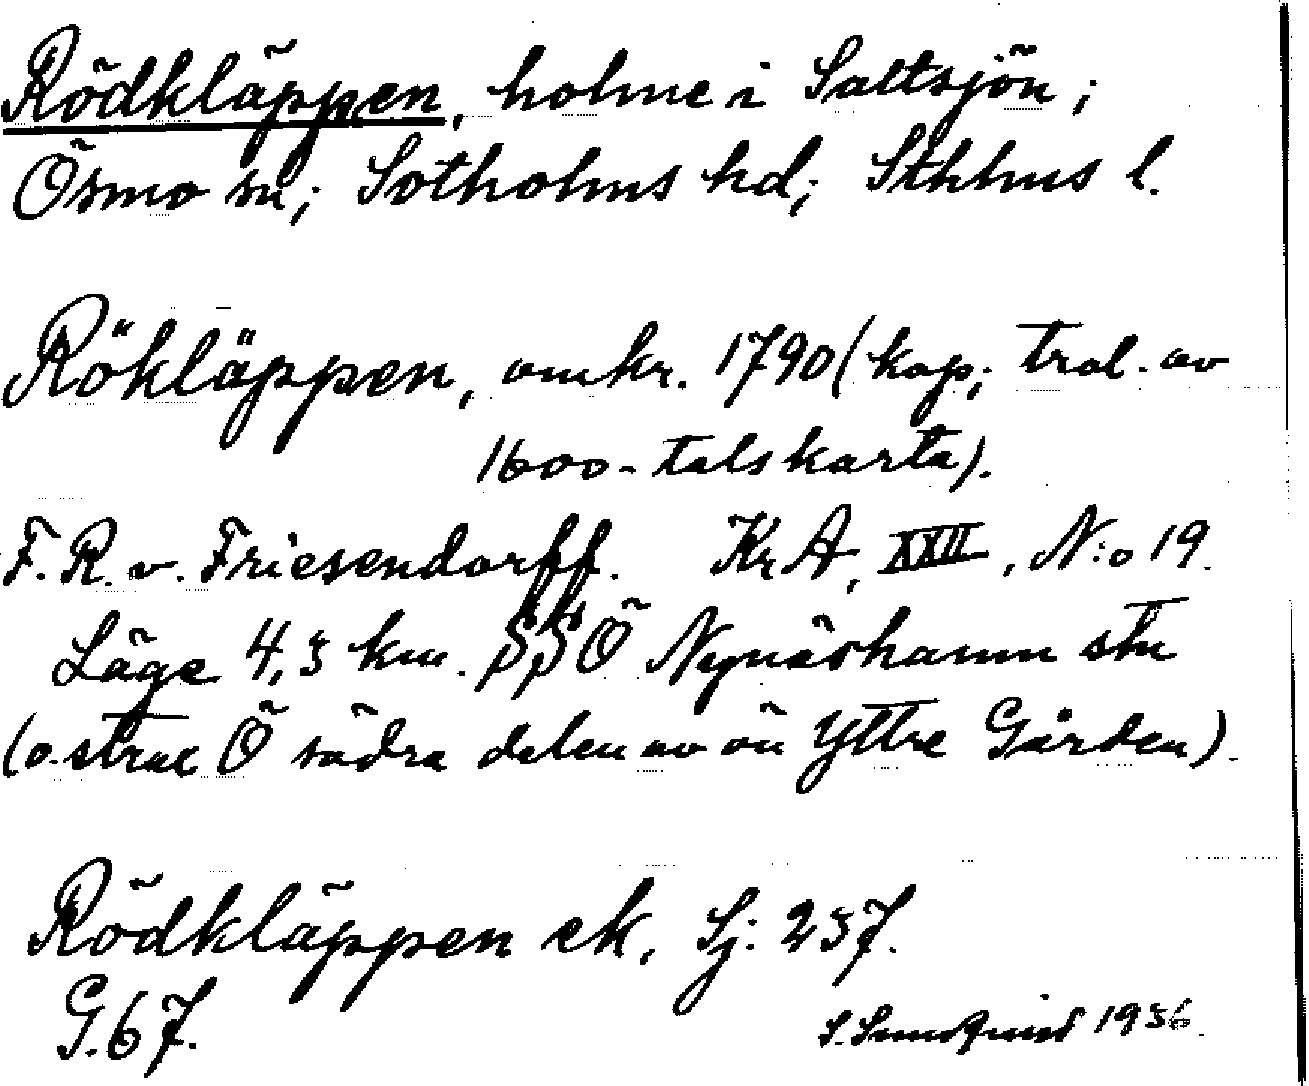 Rödkläppen, holme i Saltsjön;
Ösmo sn; Sotholms hd; Sthlms l.
Rökläppen, omkr. 1790 (kop; trol. av
1600-talskarta).
F. R. v. Friesendorff. KrA, XXII, N:o 19.
Läge 4,5 km. SSÖ Nynäshamn stn
(o. strax Ö södra delen av ön Yttre Gården).
Rödkläppen ek, Sj: 257.
G. 67.
S. Sundquist 1936